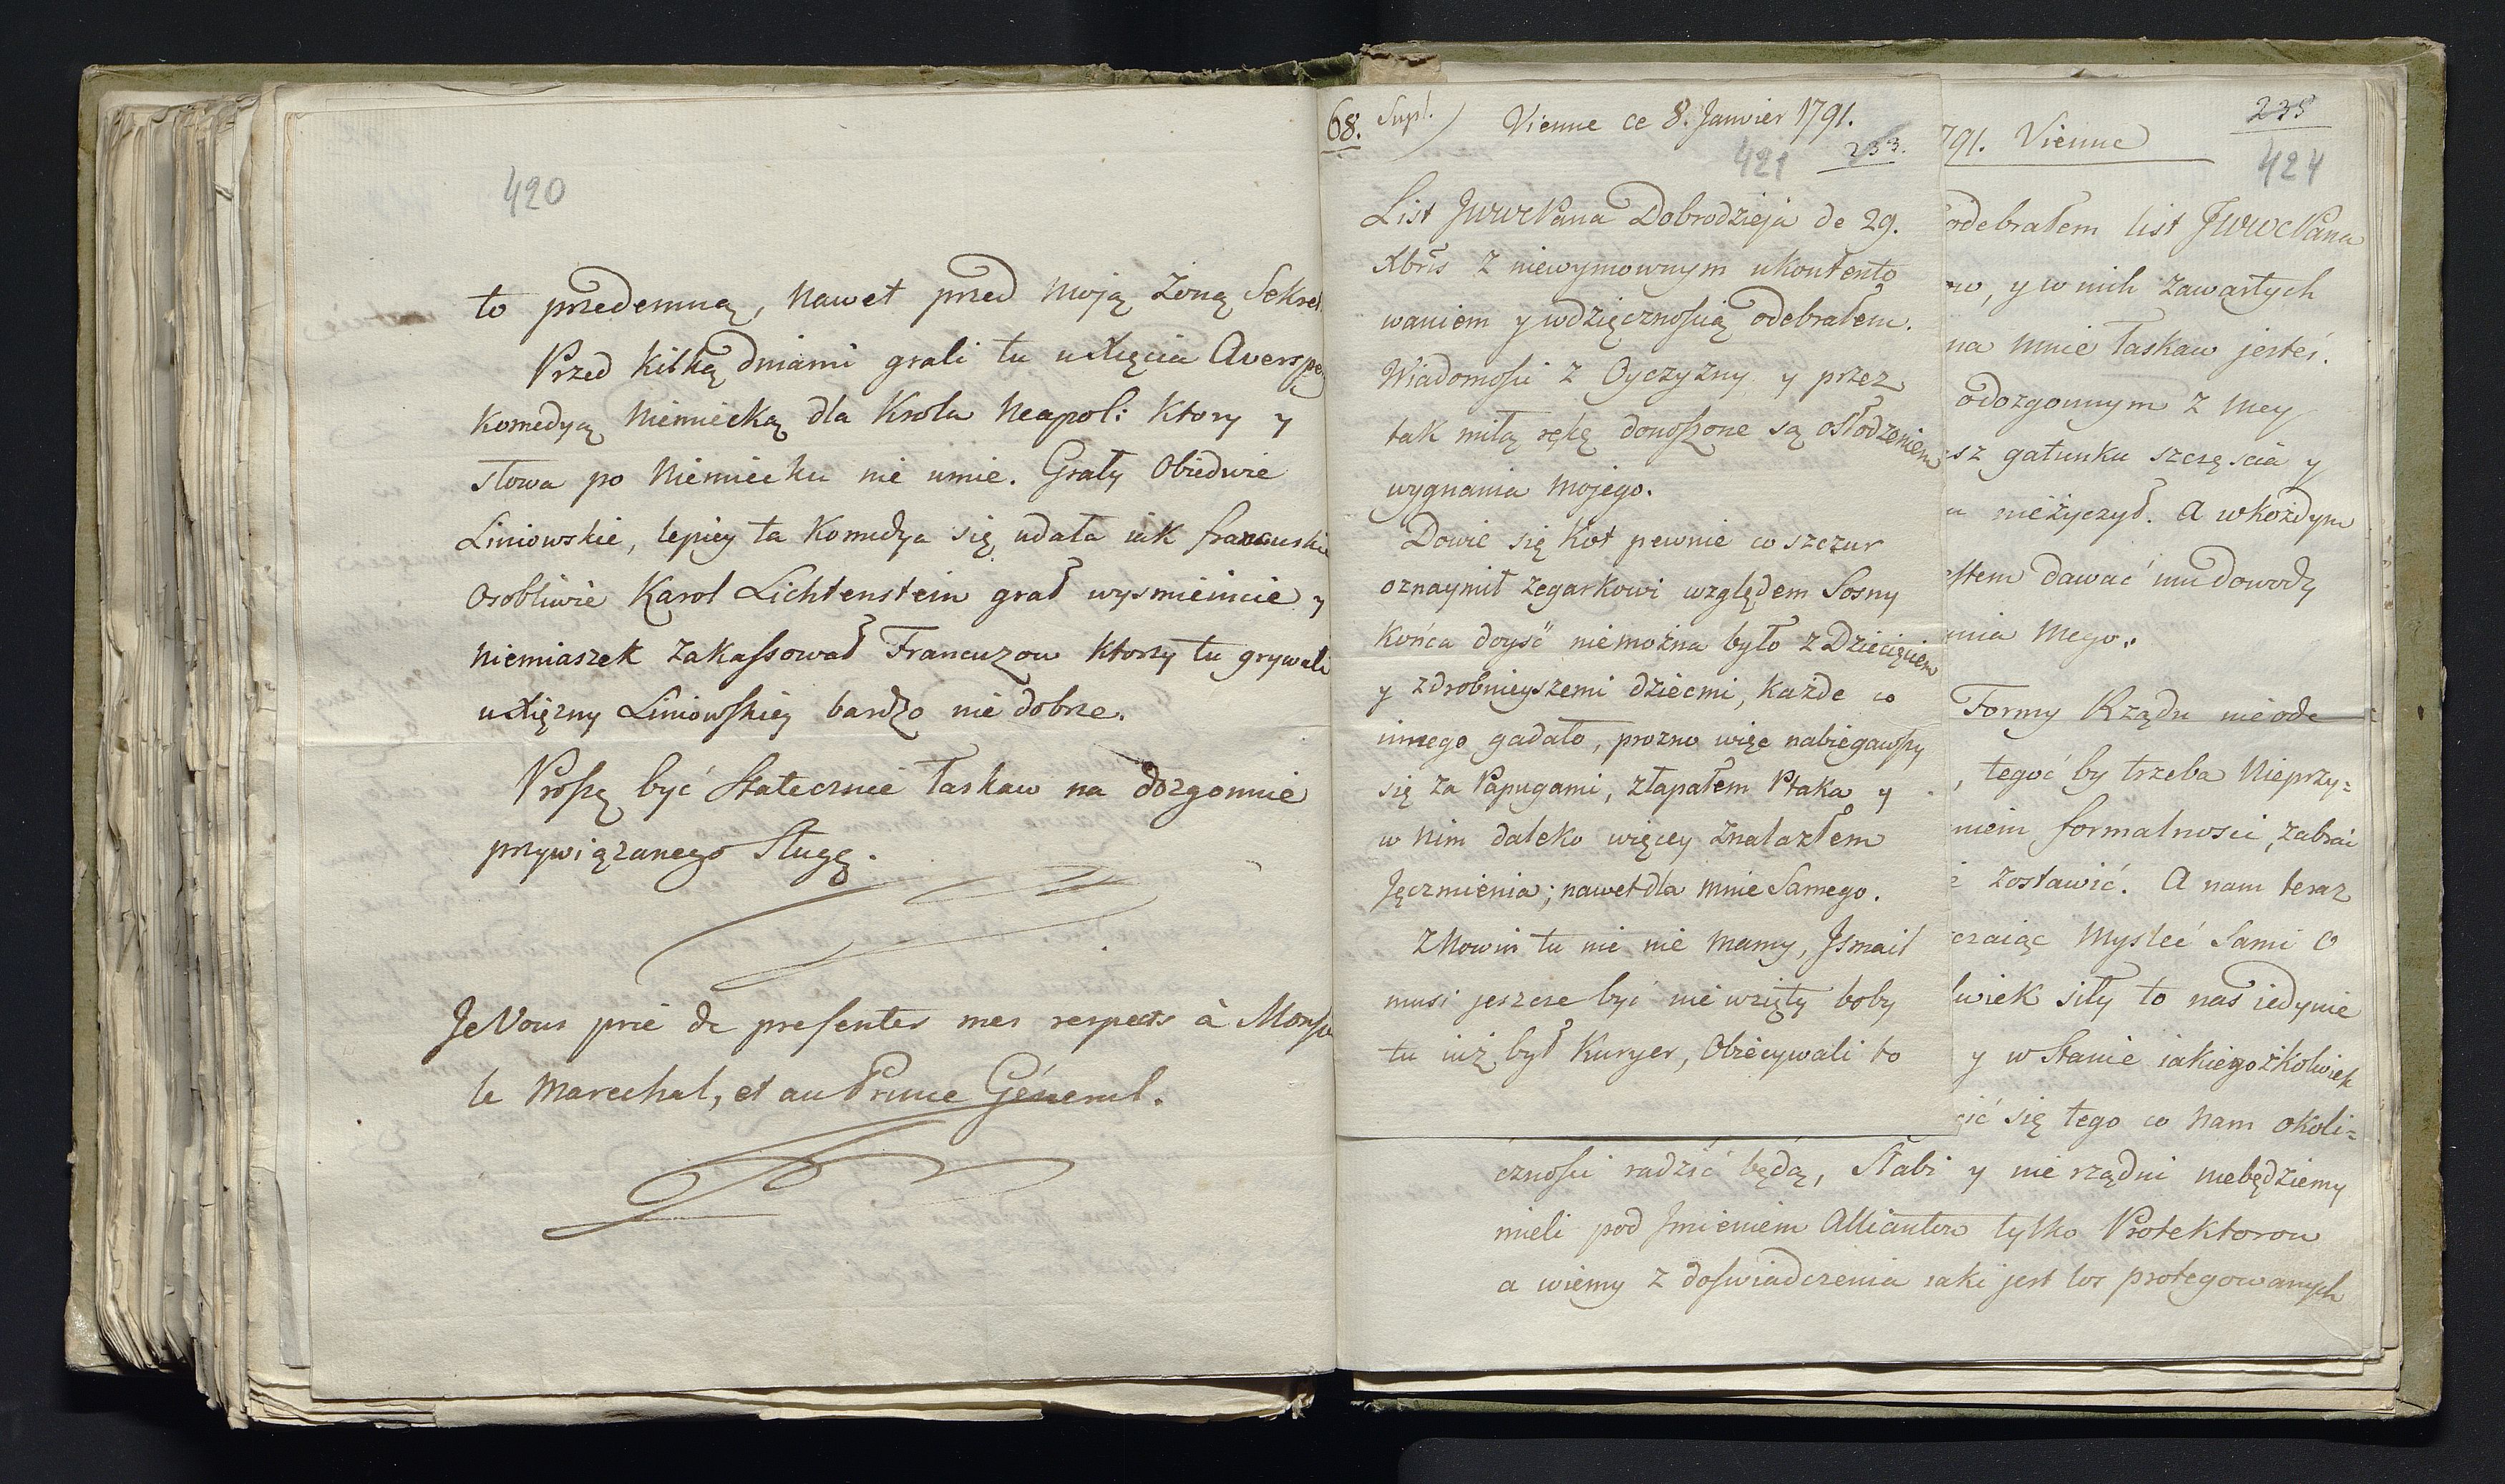 420
to przedemną, nawet przed moją Żoną Sekret
Przed kilką dniami grali tu u Xięcia Aversper
Komedyą Niemiecką dla Krola Neapol: ktory y
słowa po Niemiecku nie umie. Grały Obiedwie
Liniowskie, lepiey ta Komedya się udała iak francuskie
Osobliwie Karol Lichtenstein grał wysmienicie y
Niemiaszek zakassował Francuzow ktorzy tu grywali
u Xiężny Liniowskiey bardzo nie dobrze.
Proszę być statecznie łaskaw na dozgonnie
przywiązanego Sługę.
Je Vous prie de presenter mes respects à Monsie
le Marechal, et au Prince Géneral.
68. Supl.) Vienne ce 8. Janvier 1791.
421 233.
List JWWcPana Dobrodzieja de 29.
Xbris z niewymownym ukontento
waniem y wdzięcznością odebrałem.
Wiadomości z Oyczyzny y przez
tak miłą rękę donoszone są osłodzeniem
wygnania mojego.
Dowie się Kot pewnie co szczur
oznaymił zegarkowi względem Sosny
Końca doyść niemożna było z Dziecięciem
y zdrobnieyszemi dziecmi, każde co
innego gadało, prozno więc nabiegawszy
się za Papugami, złapałem Ptaka y
w nim daleko więcey znalazłem
Jęczmienia; nawet dla mnie Samego.
Z Nowin tu nic nie mamy, Jsmail
musi jeszcze być nie wzięty boby
tu iuż był Kuryer, Obiecywali to
791. Vienne
235
424
odebrałem list JWWcPana
ow, y w nich zawartych
na mnie łaskaw jesteś.
odozgonnym z mey
sz gatunku szczęścia y
u nieżyczył. A w każdym
estem dawać mu dowody
ania Mego.
Formy Rządu nieode
, tegoć by trzeba Nieprzy=
niem formalności, zabrać
ć zostawić. A nam teraz
czaiąc Mysleć Sami O
lwiek siły to nas iedynie
y w Stanie iakiegożkolwiek
cić się tego co Nam okoli=
czności radzić będą, Słabi y nie rządni niebędziemy
mieli pod Jmieniem Alliantow tylko Protektorow
a wiemy z doswiadczenia iaki jest los protegowanych